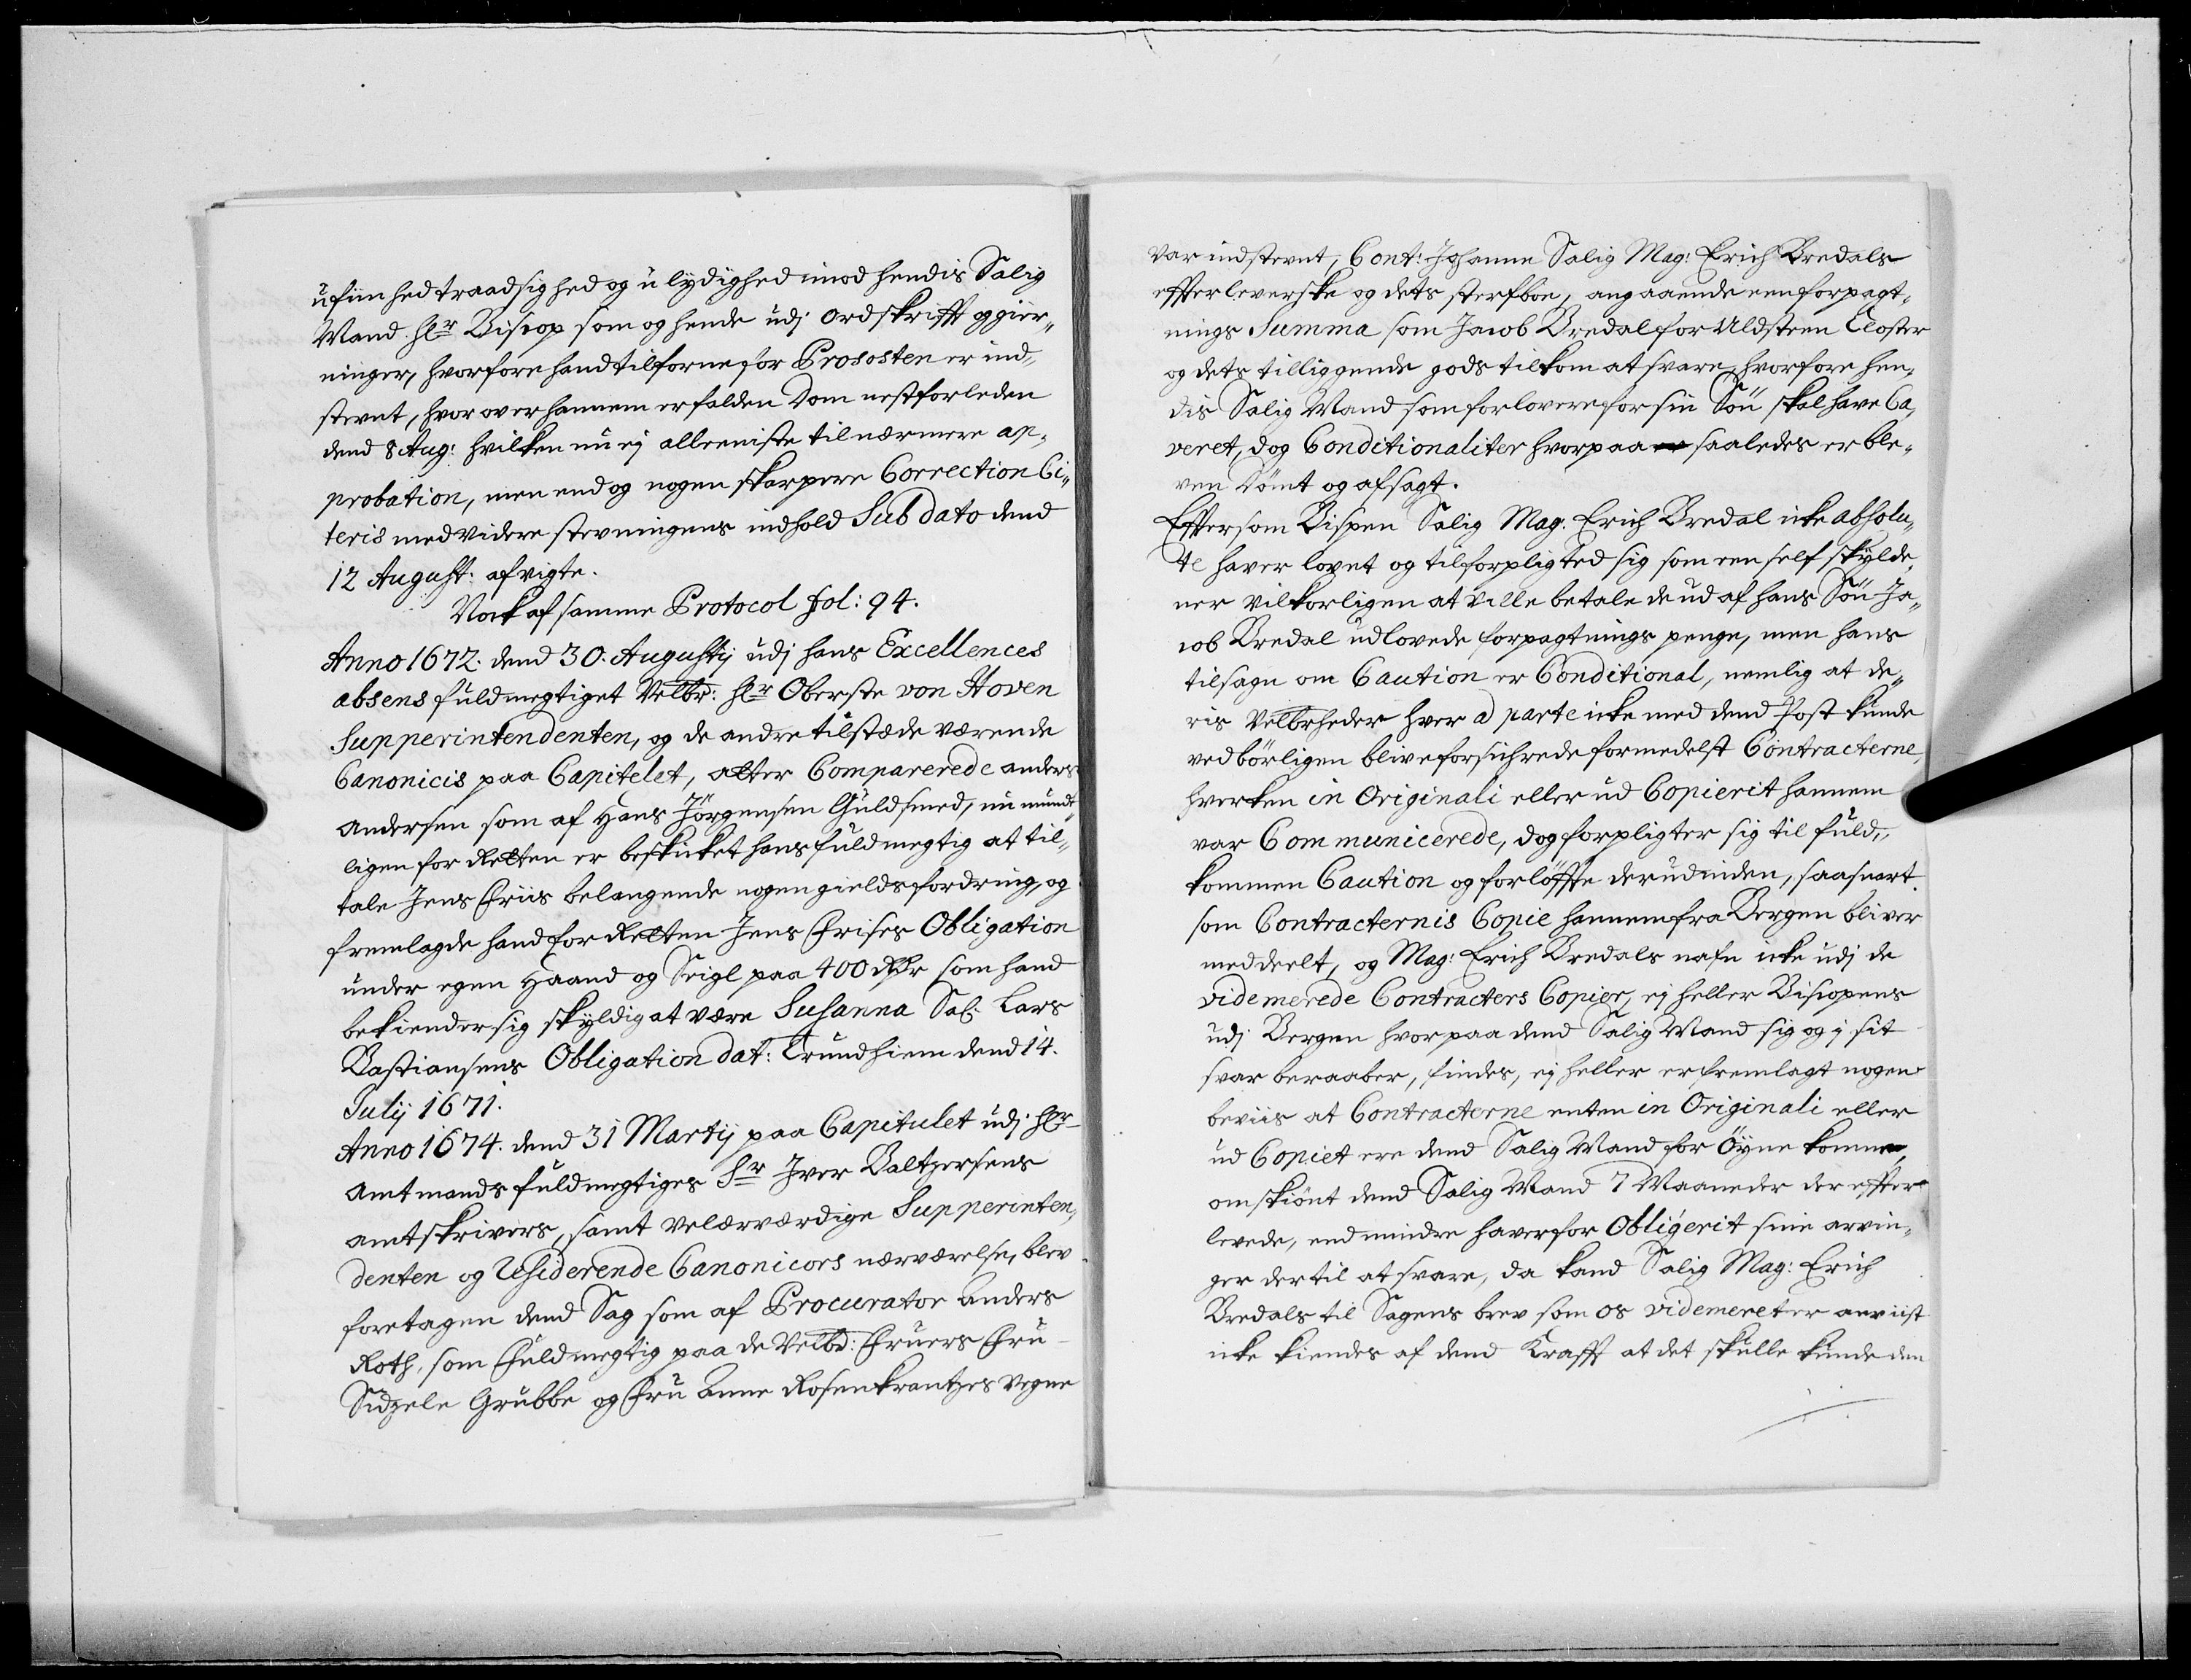 ufiinhed traadsighed og ulydighed imod hendis Salig
Mand Hr Biscop som og hende udj ordskrifft og giør„
ninger, hvorfore hand tilforne for Prososten er ind„
stevnt, hvor over hannem er falden Dom nestforleden
dend 8 Aug: hvilken nu ej alleeniste til nærmere ap„
probation, men end og nogen skarpere Correction Ci„
teris med videre stevningens indhold Sub dato dend
12 August: afvigte.
Nock af samme Protocol fol: 94.
Anno 1672. dend 30. Augustij udj hans Excellences
absens fuldmegtiget Velbr: Hr Oberste von Hoven
Supperintendenten, og de andre tilstæde værende
Canonicis paa Capitelet, atter Comparerede anders
andersen som af Hans Jörgensen Guldsmed, nu mundt„
ligen for Retten er beskicket hans fuldmegtig at til„
tale Jens Friis belangende nogen gields fordring, og
fremlagde hand for Retten Jens Frises Obligation
under egen Haand og Seigl paa 400 Rdr som hand
bekiender sig skyldig at være Susanna Sal: Lars
Bastiansens Obligation dat: Trundhiem dend 14.
Julij 1671.
Anno 1674. dend 31 Martij paa Capitulet udj Hr
Amtmands fuldmegtiges Sr Iver Baltzersens
amtskrivers, samt velærværdige Supperinten„
denten og Residerende Canonicors nærværelse, blev
foretagen dend Sag som af Procurator Anders
Roth, som Fuldmegtig paa de Velbr: Fruers Fru
Sidzele Grubbe og Fru Anne Rosenkrantzes vegne
var indstevnt, Cont: Johanne Salig Mag: Erich Bredals
effterleverske og dets sterfboe, angaaende een forpagt„
nings Summa som Jacob Bredal for Uldsteen Closter
og dets tilliggende gods tilkom at svare, hvorfore hen„
dis Salig Mand som forlovere for sin Sön skal have Ca„
veret, dog Conditionaliter hvorpaa saaledes er ble„
ven Dömt og afsagt.
Effersom Bispen Salig Mag: Erich Bredal icke absolu„
te haver lovet og tilforpligted sig som een self skylde„
ner vilkorligen at ville betale de ud af hans Sön Ja„
cob Bredal udlovede forpagtnings penge, men hans
tilsagn om Caution er Conditional, nemlig at de„
ris Velbrheder hver a parte icke med dend Post kunde
vedbörligen blive forsichrede formedelst Contracterne,
hverken in Originali eller ud Copierit hannem
var Communicerede, dog forpligter sig til fuld„
kommen Caution og forlöffte derudinden, saasnart
som Contracternis Copie hannem fra Bergen bliver
meddeelt, og Mag: Erich Bredals nafn icke udj de
videmerede Contracters Copier, ej heller Biscopens
udj Bergen hvorpaa dend Salig Mand sig og i sit
svar beraaber, findes, ej heller er fremlagt nogen
beviis at Contracterne enten in Originali eller
ud Copiet ere dend Salig Mand for Öyne komme,
omskiönt dend Salig Mand 7 Maaneder der effter
levede, end mindre haver for Obligerit sine arvin„
ger dertil at svare, da kand Salig Mag: Erich
Bredals til Sagens brev som os videmeret er anviist
icke kiendes af dend Krafft at det skulle kunde den